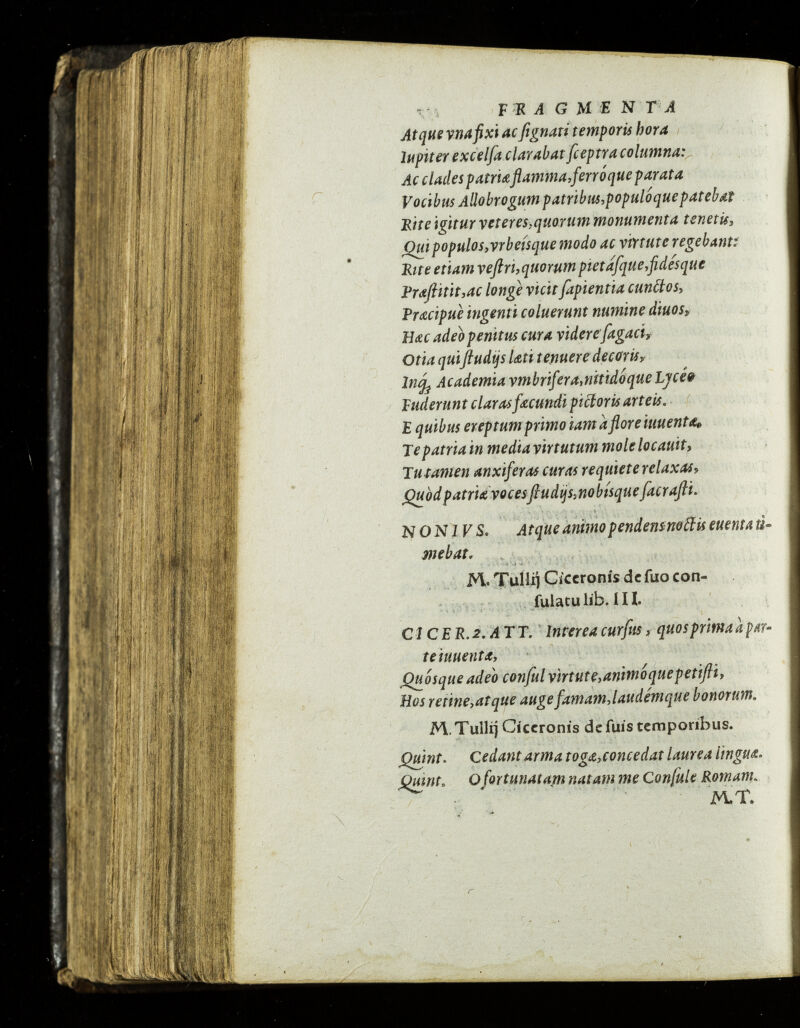 FRAGMENTA
Atque vna fixi ac signati temporis hora
Iupiter excelsa clarabat sceptra columna:
Ac clades patriæ flamma, ferróque parata
Vocibus Allobrogum patribus, populóque patebat
Rite igitur veteres, quorum monumenta tenetis,
Qui populos, vrbeísque modo ac virtute regebant:
Rite etiam vestri, quorum pietásque, fidésque
Præstitit, ac longè vicit sapientia cunctos,
Præcipuè ingenti coluerunt numine diuos,
Hæc adeò penitus cura videre sagaci,
Otia qui studijs læti tenuere decoris,
Inq; Academia vmbrifera, nitidóque Lyceo
Fuderunt claras fæcundi pictoris arteis.
E quibus ereptum primo iam à flore iuuentæ,
Te patria in media virtutum mole locauit,
Tu tamen anxiferas curas requiete relaxas,
Quòd patriæ voces studijs, nobísque sacrasti.
NONIVS. Atque animo pendens noctis euenta ti-
mebat.
M. Tullij Ciceronis de suo con-
sulatu lib. III.
CICER. 2. ATT. Interea cursus, quos prima à par-
te iuuentæ,
Quósque adeò consul virtute, animóque petisti,
Hos retine, atque auge famam, laudémque bonorum.
M. Tullij Ciceronis de suis temporibus.
Quint. Cedant arma togæ, concedat laurea linguæ.
Quint. O fortunatam natam me Consule Romam.
M.T.